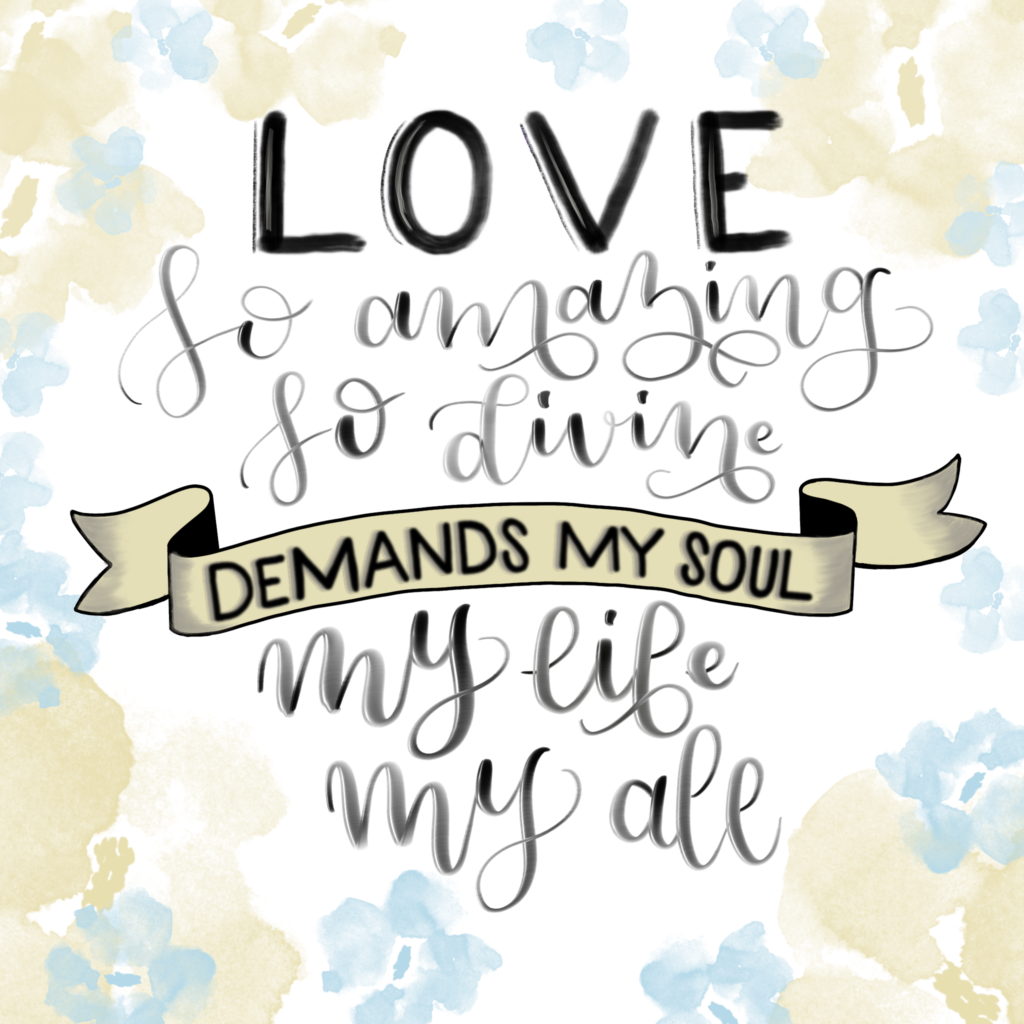 LOVE
So amazing
So divine
DEMANDS MY SOUL
my life
my all